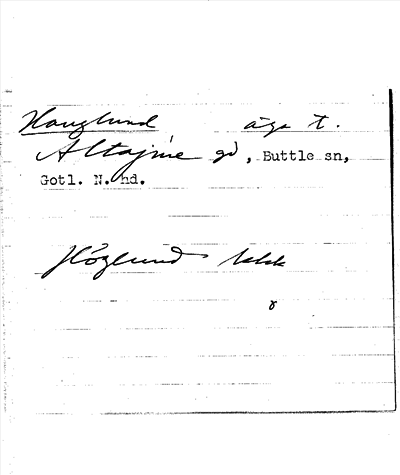 Hauglund äga t.
Altajme gd, Buttle sn,
Gotl. N. hd.
Höglund